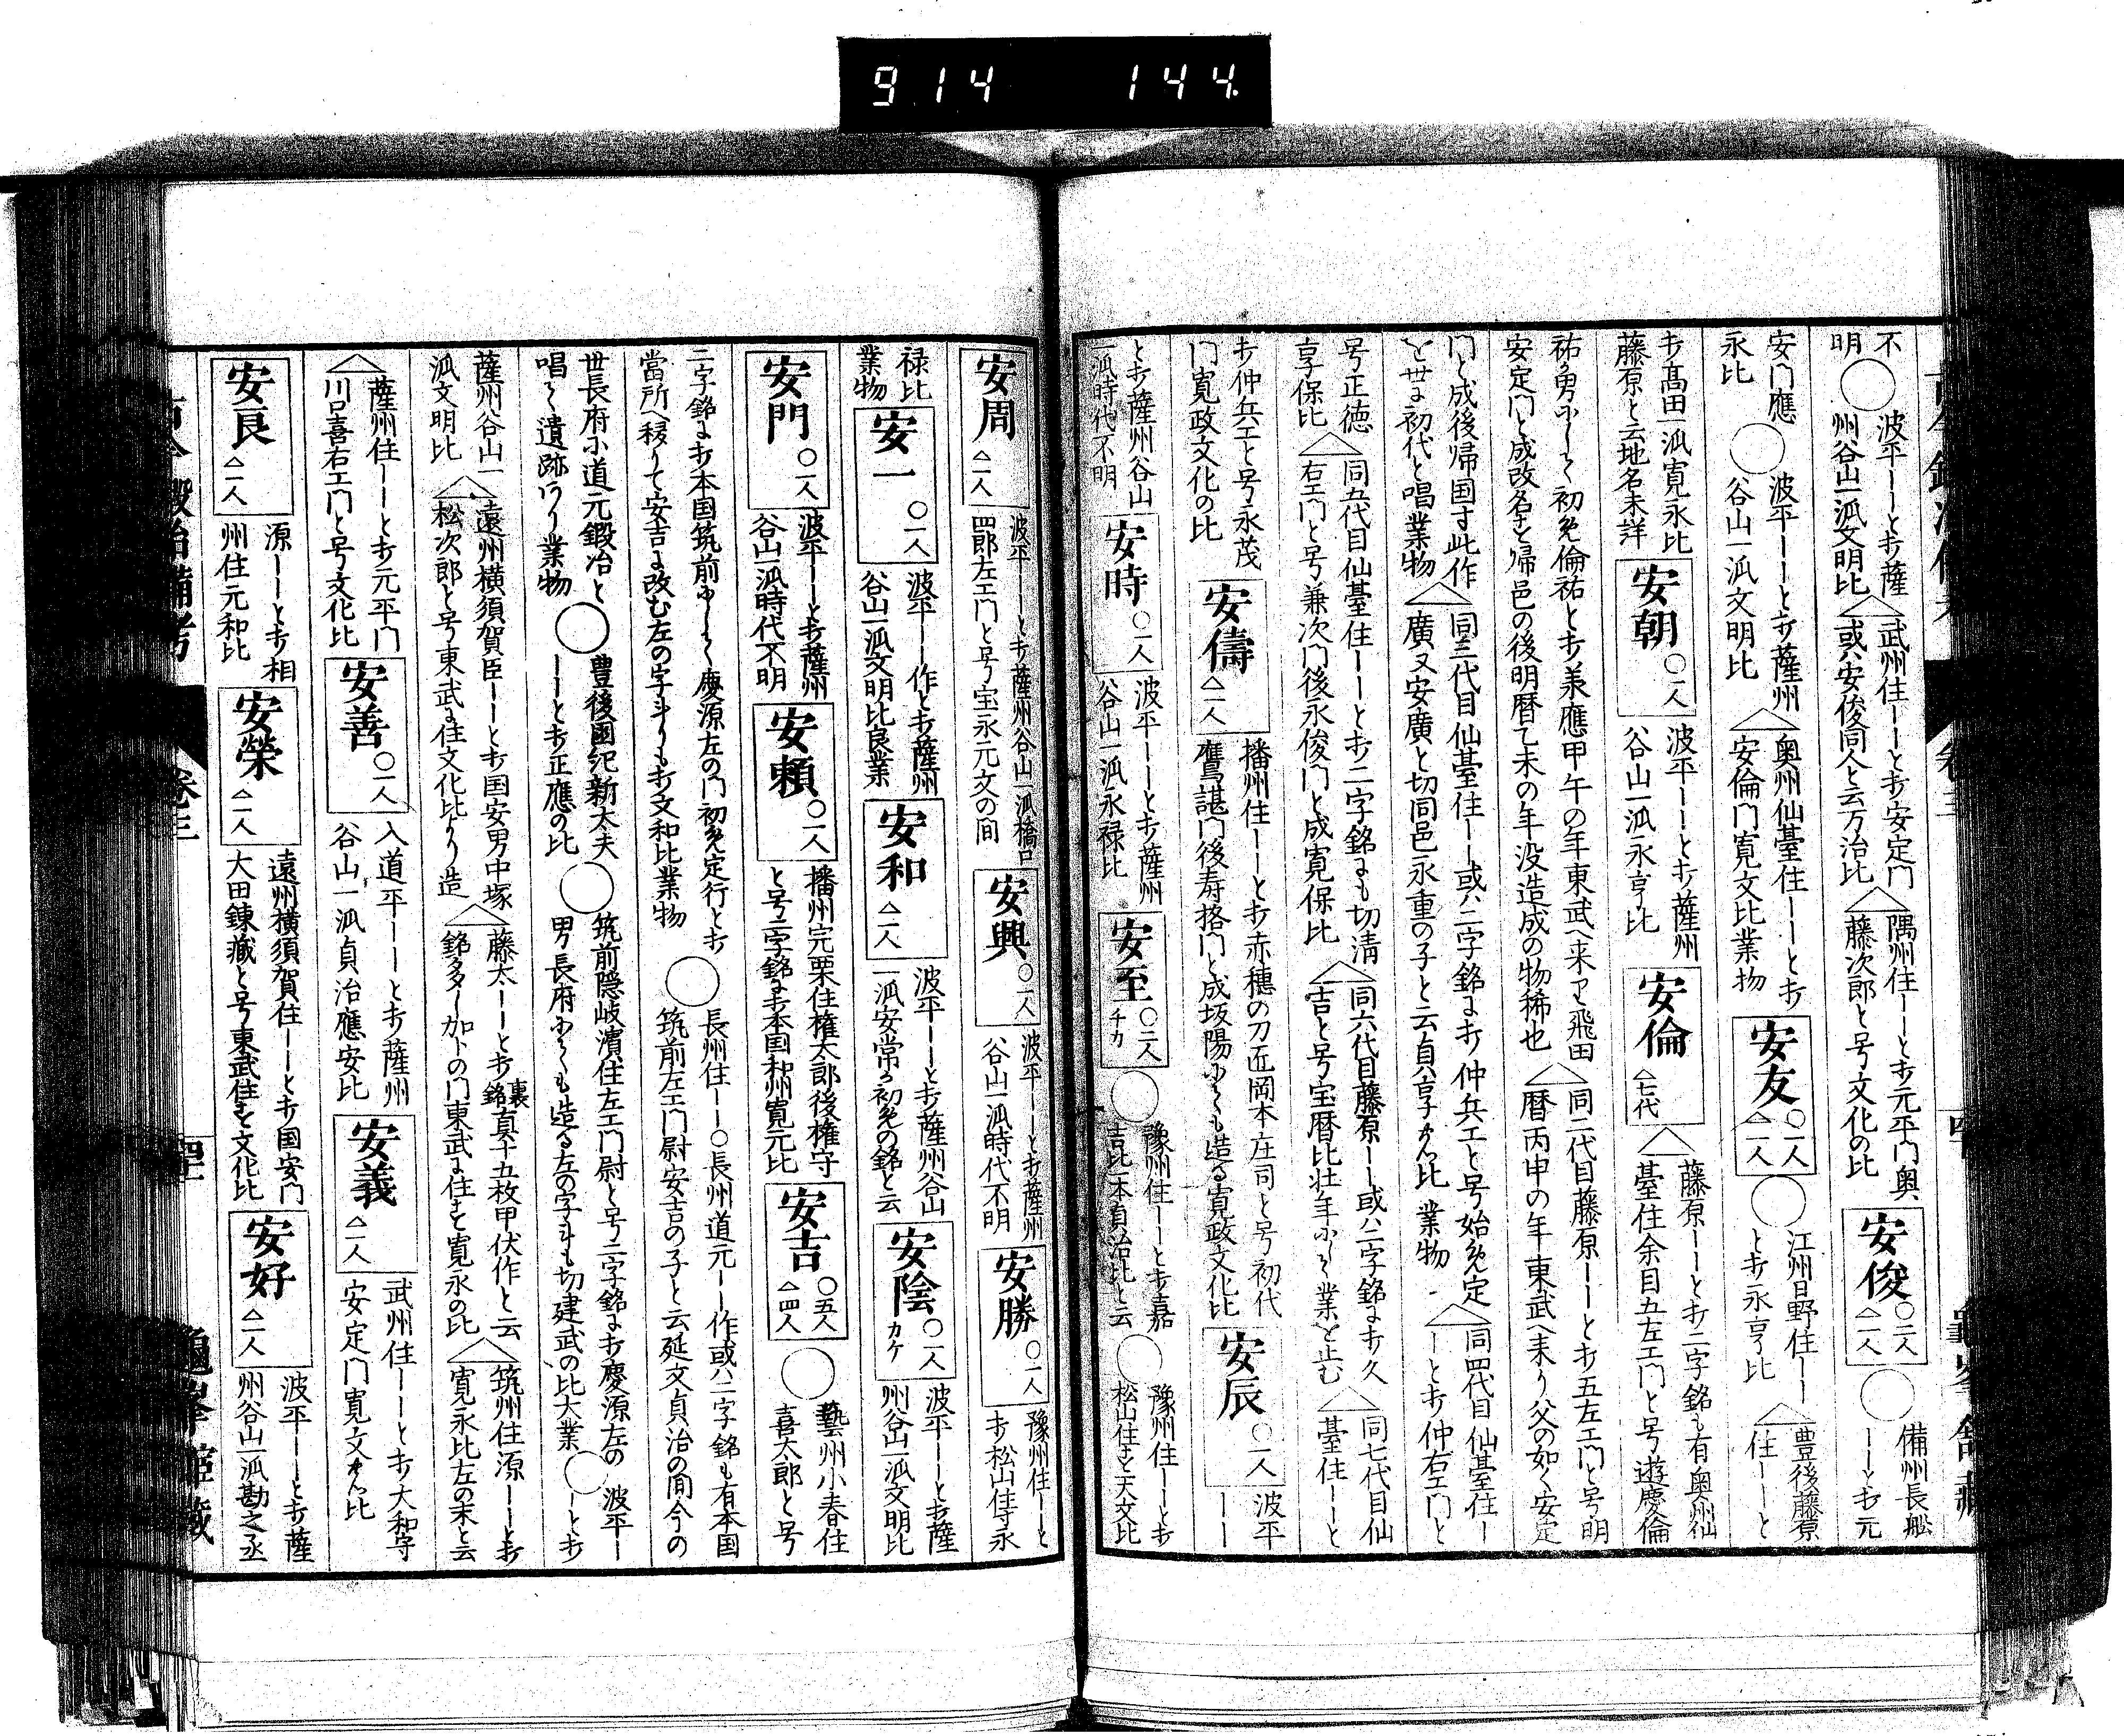 914 144
不明
○波平──と打薩州谷山一派文明比
△武州住──と打安定門或ハ安後同人と云万治比
△隅州住──と打元平門奥藤次郎と号文化の比
安俊 ○二人 △二人
○備州長船──と打元
安門應永比
○波平──と打薩州谷山一派文明比
△奥州仙臺住──と打安倫門寛文比業物
安友 ○二人 △二人
○江州日野住──と打永亨比
△豊後藤原住──と
打髙田一派寛永比藤原と云地名未詳
安朝 ○一人
波平──と打薩州谷山一派永亨比
安倫 △七代
△藤原──と打二字銘も有奥州仙臺住余目五左エ門と号遊慶倫
祐の男にして初め倫祐と打承應甲午の年東武へ来り飛田安定門と成改名すと帰邑の後明暦乙未の年没造成の物稀也
△同二代目藤原──と打五左エ門と号明暦丙申の年東武へ来り父の如く安定
門と成後帰国す此作を世に初代と唱業物
△同三代目仙臺住──或ハ二字銘に打仲兵工と号始め定廣又安廣と切同邑永重の子と云貞享比業物
△同四代目仙臺住──と打仲右エ門と
号正徳享保比
△同五代目仙臺住──と打二字銘にも切清右エ門と号兼次門後永俊門と成寛保比
△同六代目藤原──或ハ二字銘に打久吉と号宝暦比壮年にして業を止む
△同七代目仙臺住──と
打仲兵工と号永茂門寛政文化の比
安儔 △二人
播州住──と打赤穗の刀匠岡本庄司と号初代鷹諶門後寿格門と成坂陽にても造る寛政文化比
安辰 ○一人
波平──
と打薩州谷山一派時代不明
安時 ○一人
波平──と打薩州谷山一派永禄比
安至 ○二人 チカ
○豫州住──と打嘉吉比一本貞治比と云
○豫州住──と打松山住すと天文比
安周 △一人
波平──と打薩州谷山一派橋口四郎左エ門と号宝永元文の间
安興 ○一人
波平──と打薩州谷山一派時代不明
安勝 ○一人
豫州住──と打松山住す永
禄比業物
安一 ○一人
波平──作と打薩州谷山一派文明比良業
安和 △二人
波平──と打薩州谷山一派安常の初めの銘と云
安陰 ○一人 カケ
波平──と打薩州谷山一派文明比
安門 ○一人
波平──と打薩州谷山一派時代不明
安頼 ○一人
播州完栗住権太郎後権守と号二字銘に打本国和州寛元比
安吉 ○五人 △四人
○藝州小春住喜太郎と号
二字銘に打本国筑前にして慶源左の門初め定行と打當所へ移りて安吉に改む左の字斗りも打文和比業物
○長州住──○長州道元──作或ハ二字銘も有本国筑前左エ門尉安吉の子と云延文貞治の间今の
世長府に道元鍛冶と唱て遺跡あり業物
○豊後國紀新大夫──と打正應の比
○筑前隠岐濱住左エ門尉と号二字銘に打慶源左の男長府にても造る左の字斗も切建武の比大業
○波平──と打
薩州谷山一派文明比
△遠州横須賀臣──と打国安男中塚松次郎と号東武に住文化比より造
△藤太──と打裏銘真十五枚甲伏作と云銘多し加卜の門東武に住すと寛永の比
△筑州住源──と打寛永比左の末と云
△薩州住──と打元平門川口喜右エ門と号文化比
安善 ○一人
入道平──と打薩州谷山一派貞治應安比
安義 △一人
武州住──と打大和守安定門寛文比
安良 △一人
源──と打相州住元和比
安榮 △一人
遠州横須賀住──と打国安門大田錬藏と号東武住すと文化比
安好 △二人
波平──と打薩州谷山一派勘之丞
古今鍛冶備考 巻三